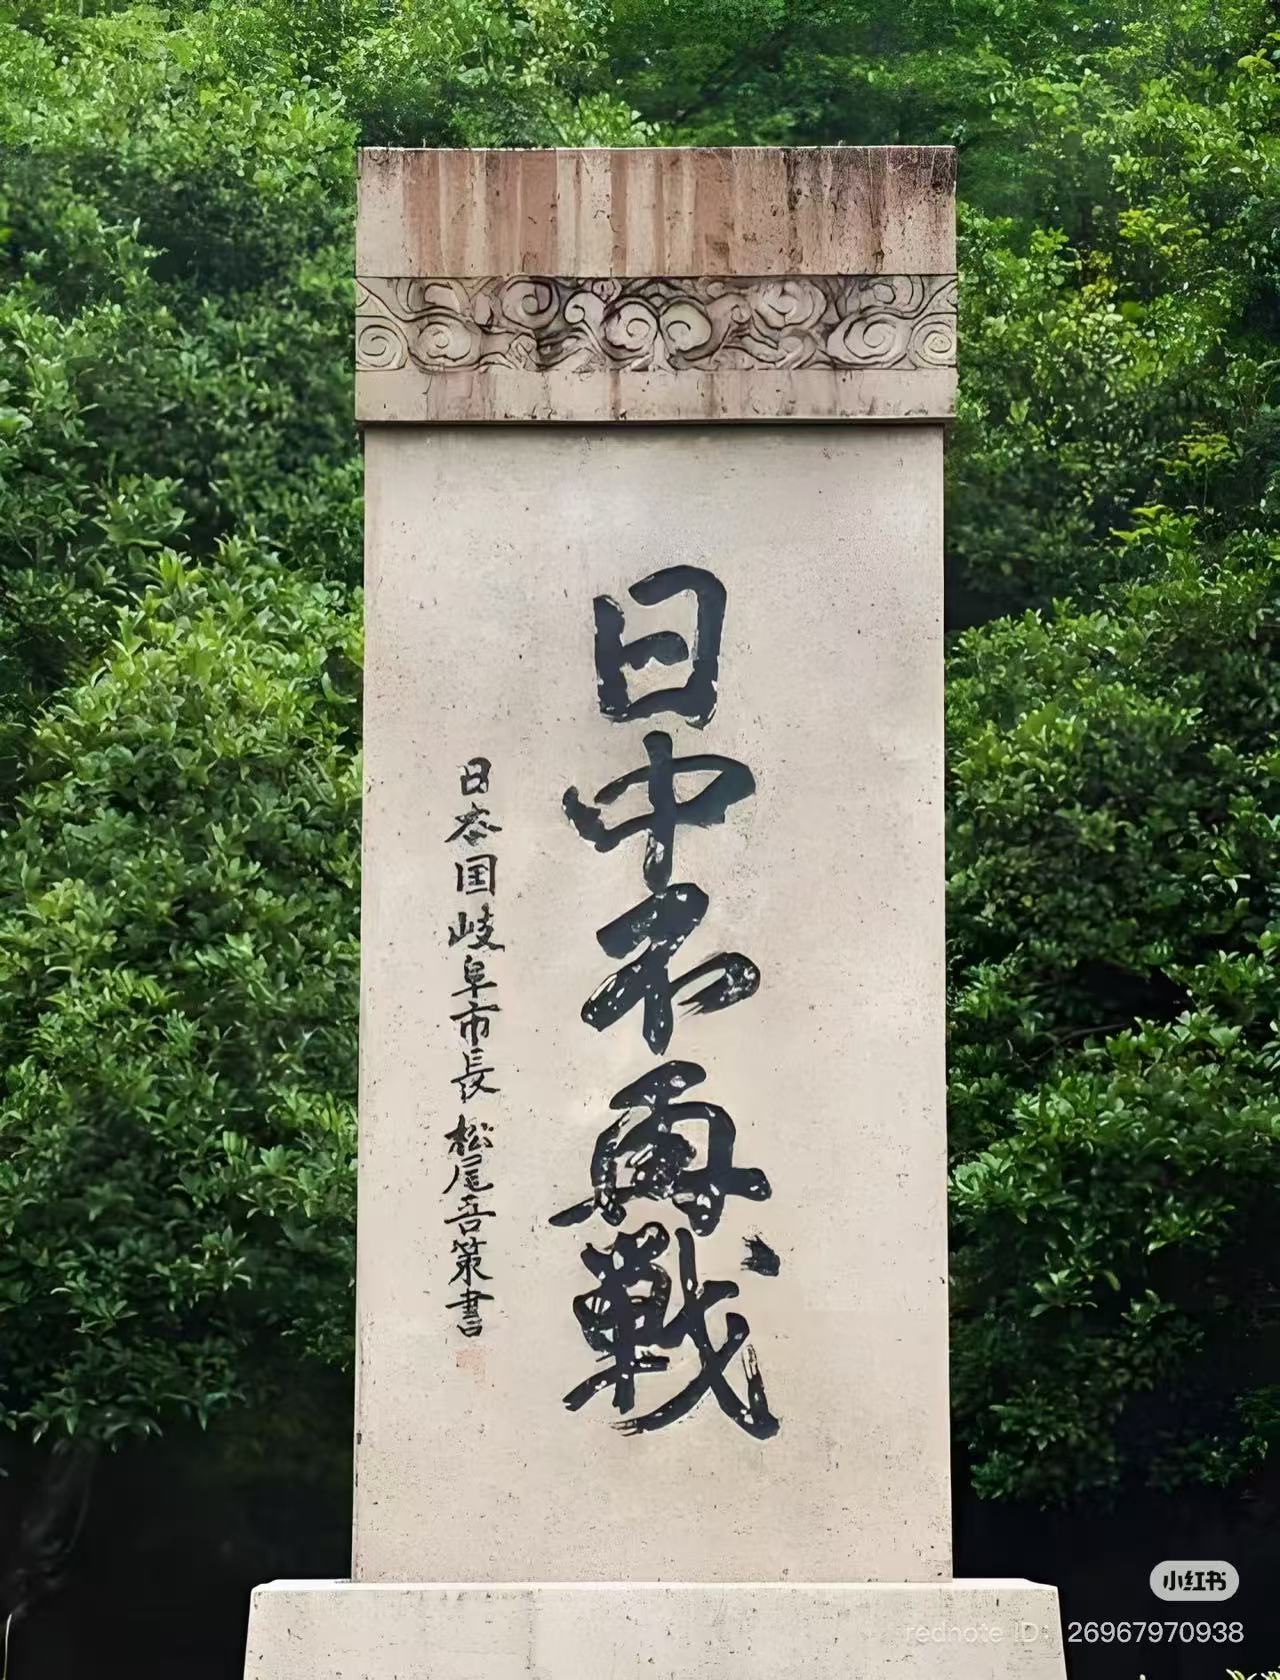 日中不再戰
日本国岐阜市長 松尾吾策書
小红书
rednote ID: 26967970938